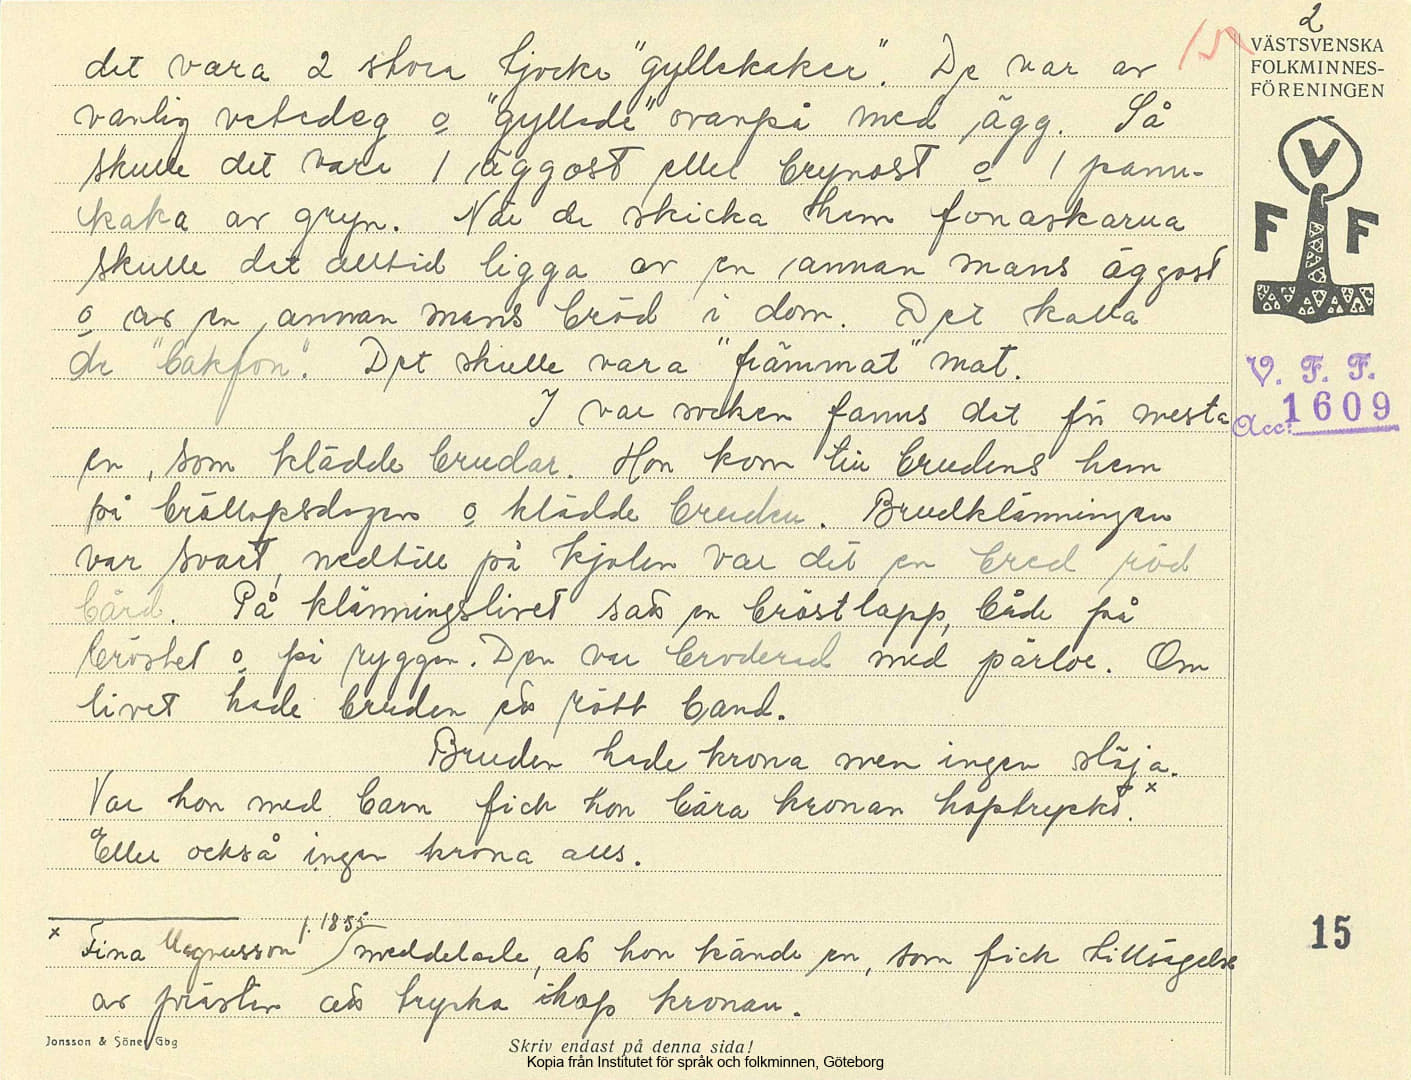 2
VÄSTSVENSKA
FOLKMINNES-
FÖRENINGEN
V
F F
V. F. F.
Acc: 1609
det vara 2 stora tjocke "gyllekaker". De var av
vanlig vetedeg o "gyllede" ovanpå med ägg. Så
skulle det vara 1 äggost eller grynost o 1 pann-
kaka av gryn. När de skicka hem fonaskarna
skulle det alltid ligga av en annan mans äggost
o av en annan mans bröd i dom. Det kalla
de "bakfon". Det skulle vara "främmat" mat.
I var socken fanns det för mesta
en, som klädde brudar. Hon kom till brudens hem
på bröllopsdagen o klädde bruden. Brudklänningen
var svart, nedtill på kjolen var det en bred röd
bård. På klänningslivet satt en bröstlapp, både på
bröstet o på ryggen. Den var broderad med pärlor. Om
livet hade bruden ett rött band.
Bruden hade krona men ingen slöja.
Var hon med barn fick hon bära kronan hoptryckt.x
Eller också ingen krona alls.
x Fina Magnusson f. 1855 meddelade, att hon kände en, som fick tillsägelse
av prästen att trycka ihop kronan.
15
Jonsson & Söner Gbg
Skriv endast på denna sida!
Kopia från Institutet för språk och folkminnen, Göteborg